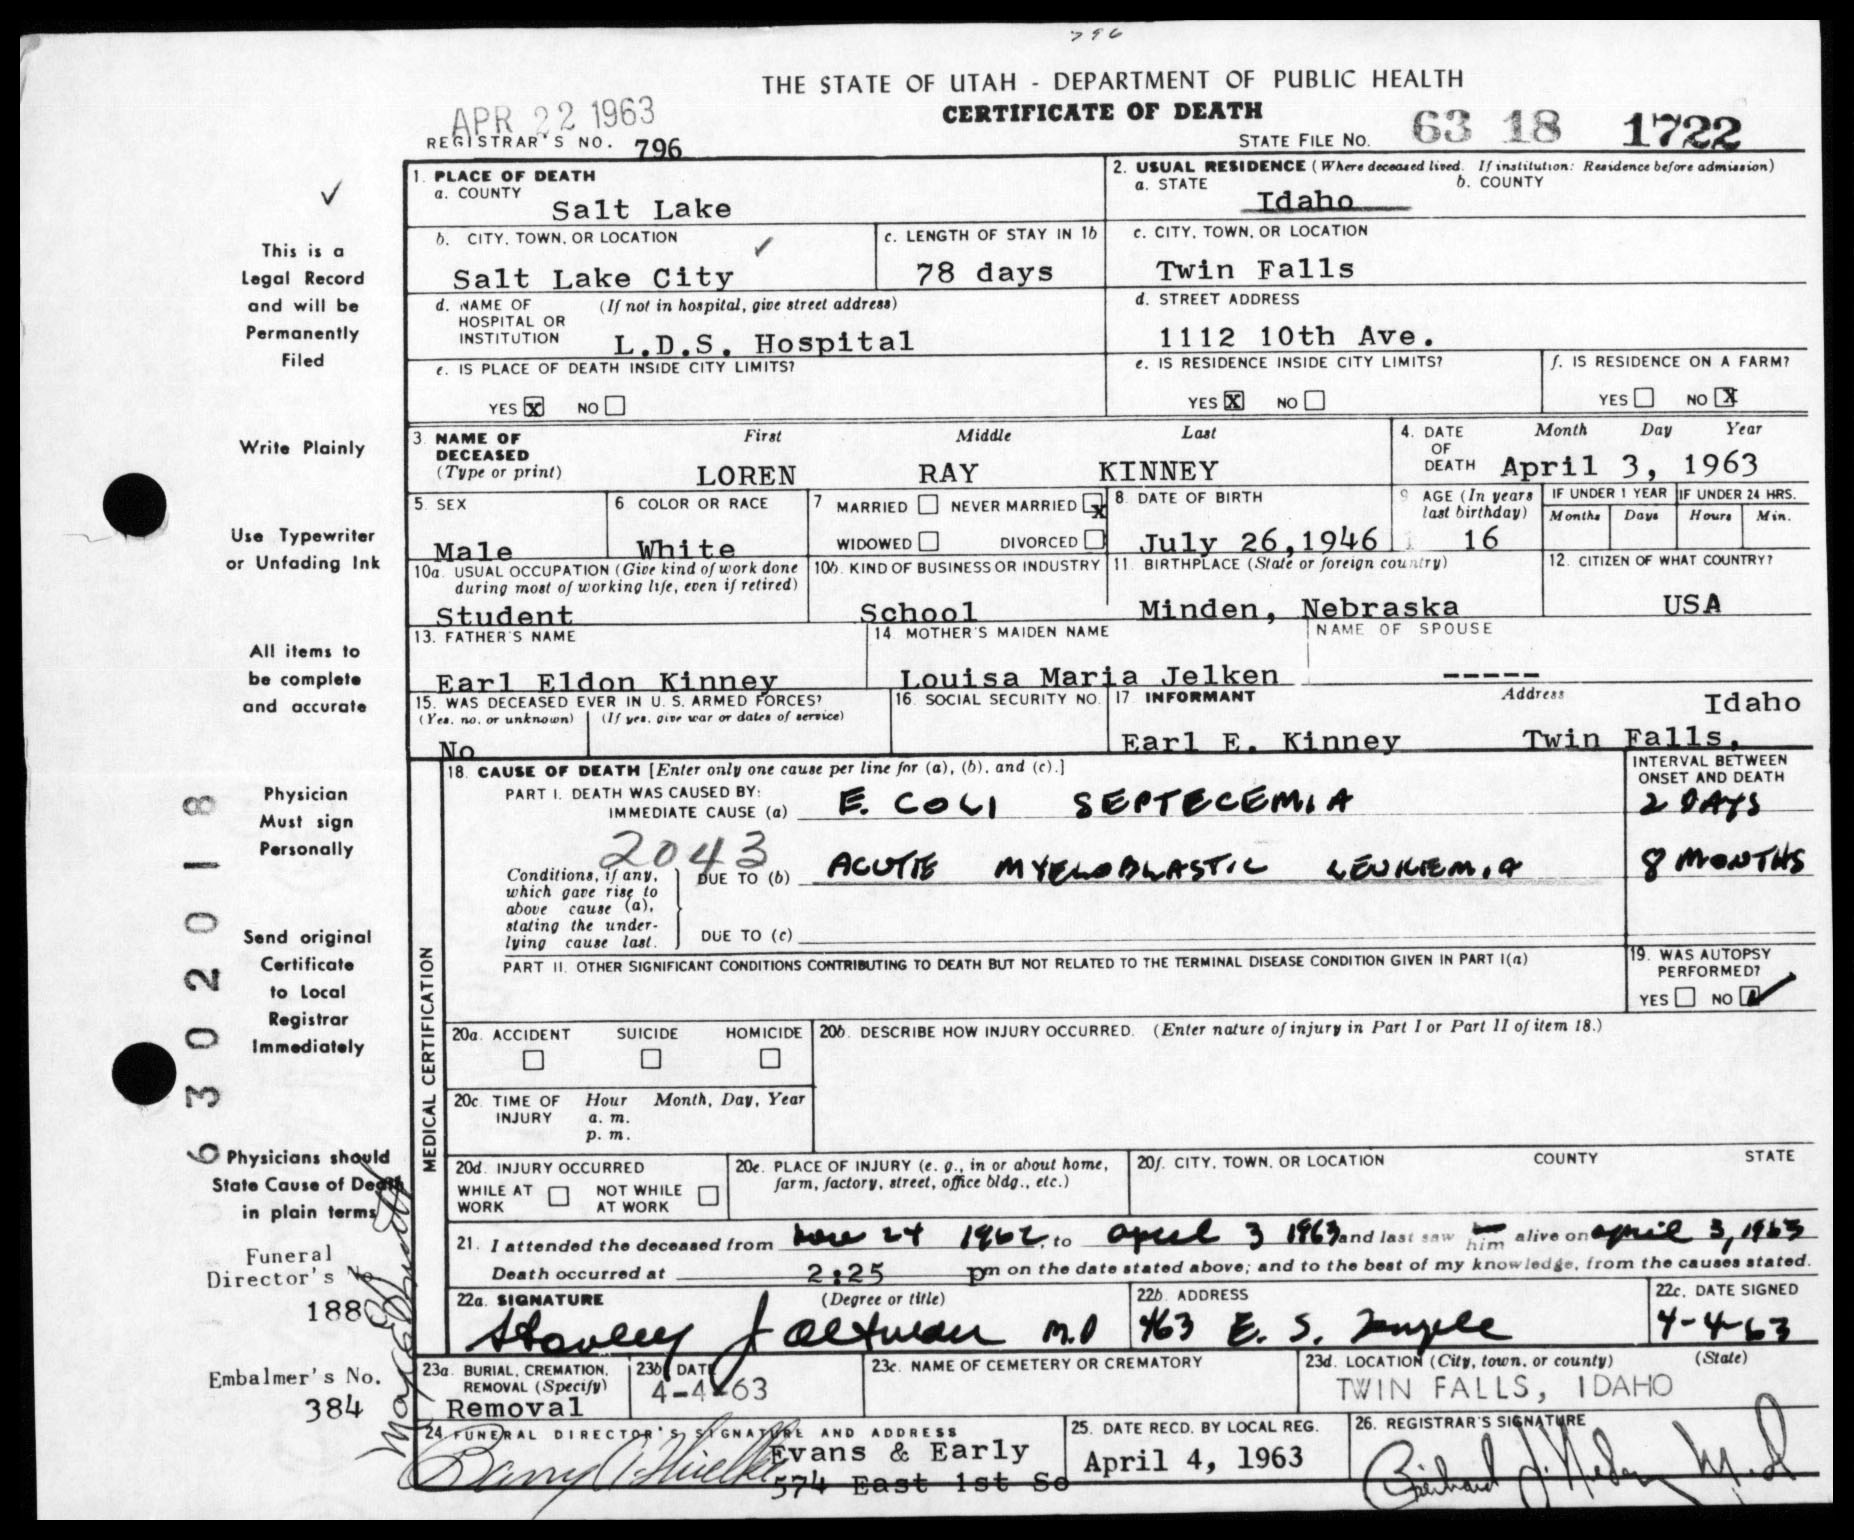 796
THE STATE OF UTAH - DEPARTMENT OF PUBLIC HEALTH
CERTIFICATE OF DEATH
APR 22 1963
REGISTRAR'S NO. 796
STATE FILE NO. 63 18 1722
1. PLACE OF DEATH
a. COUNTY
Salt Lake
2. USUAL RESIDENCE (Where deceased lived. If institution: Residence before admission)
a. STATE
b. COUNTY
Idaho
b. CITY, TOWN, OR LOCATION
Salt Lake City
c. LENGTH OF STAY IN 1b
78 days
c. CITY, TOWN, OR LOCATION
Twin Falls
d. NAME OF HOSPITAL OR INSTITUTION
(If not in hospital, give street address)
L.D.S. Hospital
d. STREET ADDRESS
1112 10th Ave.
e. IS PLACE OF DEATH INSIDE CITY LIMITS?
YES X NO
e. IS RESIDENCE INSIDE CITY LIMITS?
YES X NO
f. IS RESIDENCE ON A FARM?
YES NO X
3. NAME OF DECEASED
(Type or print)
First Middle Last
LOREN RAY KINNEY
4. DATE OF DEATH
Month Day Year
April 3, 1963
5. SEX
Male
6 COLOR OR RACE
White
7 MARRIED NEVER MARRIED X
WIDOWED DIVORCED
8. DATE OF BIRTH
July 26,1946
9 AGE (In years last birthday)
16
IF UNDER 1 YEAR
Months Days
IF UNDER 24 HRS.
Hours Min.
10a. USUAL OCCUPATION (Give kind of work done
during most of working life, even if retired)
Student
10b. KIND OF BUSINESS OR INDUSTRY
School
11. BIRTHPLACE (State or foreign country)
Minden, Nebraska
12. CITIZEN OF WHAT COUNTRY?
USA
13. FATHER'S NAME
Earl Eldon Kinney
14. MOTHER'S MAIDEN NAME
Louisa Maria Jelken
NAME OF SPOUSE
-----
15. WAS DECEASED EVER IN U. S. ARMED FORCES?
(Yes, no, or unknown) (If yes, give war or dates of service)
No
16. SOCIAL SECURITY NO.
17 INFORMANT
Address
Earl E. Kinney
Idaho
Twin Falls,
MEDICAL CERTIFICATION
18. CAUSE OF DEATH [Enter only one cause per line for (a), (b), and (c).]
INTERVAL BETWEEN
ONSET AND DEATH
PART I. DEATH WAS CAUSED BY:
IMMEDIATE CAUSE (a) E. COLI SEPTECEMIA
2 DAYS
2043
Conditions, if any,
which gave rise to
above cause (a),
stating the under-
lying cause last.
DUE TO (b) ACUTE MYELOBLASTIC LEUKEMIA
8 MONTHS
DUE TO (c)
PART II. OTHER SIGNIFICANT CONDITIONS CONTRIBUTING TO DEATH BUT NOT RELATED TO THE TERMINAL DISEASE CONDITION GIVEN IN PART I(a)
19. WAS AUTOPSY
PERFORMED?
YES NO ✓
20a. ACCIDENT SUICIDE HOMICIDE
20b. DESCRIBE HOW INJURY OCCURRED. (Enter nature of injury in Part I or Part II of item 18.)
20c. TIME OF INJURY
Hour Month, Day, Year
a. m.
p. m.
20d. INJURY OCCURRED
WHILE AT WORK
NOT WHILE AT WORK
20e. PLACE OF INJURY (e. g., in or about home,
farm, factory, street, office bldg., etc.)
20f. CITY, TOWN, OR LOCATION COUNTY STATE
21. I attended the deceased from 24 1962, to April 3 1963 and last saw him alive on April 3, 1963
Death occurred at 2:25 pm on the date stated above; and to the best of my knowledge, from the causes stated.
22a. SIGNATURE (Degree or title)
Stanley J Altman M.D
22b. ADDRESS
463 E. S. Temple
22c. DATE SIGNED
4-4-63
23a. BURIAL, CREMATION,
REMOVAL (Specify)
Removal
23b. DATE
4-4-63
23c. NAME OF CEMETERY OR CREMATORY
23d. LOCATION (City, town, or county) (State)
TWIN FALLS, IDAHO
24 FUNERAL DIRECTOR'S SIGNATURE AND ADDRESS
Barry
Evans & Early
574 East 1st So
25. DATE RECD. BY LOCAL REG.
April 4, 1963
26. REGISTRAR'S SIGNATURE
M.D
This is a
Legal Record
and will be
Permanently
Filed
Write Plainly
Use Typewriter
or Unfading Ink
All items to
be complete
and accurate
Physician
Must sign
Personally
Send original
Certificate
to Local
Registrar
Immediately
Physicians should
State Cause of Death
in plain terms
Funeral
Director's No.
188
Embalmer's No.
384
6302018